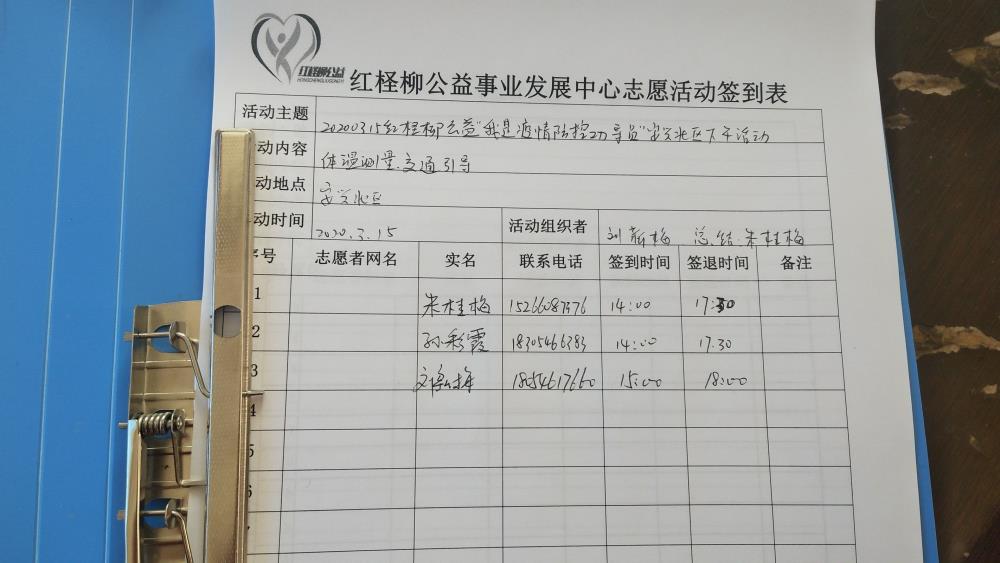 红柽柳公益
HONGCHENGLIUGONGYI
红柽柳公益事业发展中心志愿活动签到表
活动主题 20200315红柽柳公益“我是疫情防控劝导员”安兴北区下午活动
动内容 体温测量、交通引导
动地点 安兴北区
动时间 2020.3.15 活动组织者 刘静梅 总结:朱桂梅
序号 志愿者网名 实名 联系电话 签到时间 签退时间 备注
1 朱桂梅 15266087576 14:00 17:30
2 孙彩霞 18305466383 14:00 17.30
3 18054617660 15:00 18:00
4
5
6